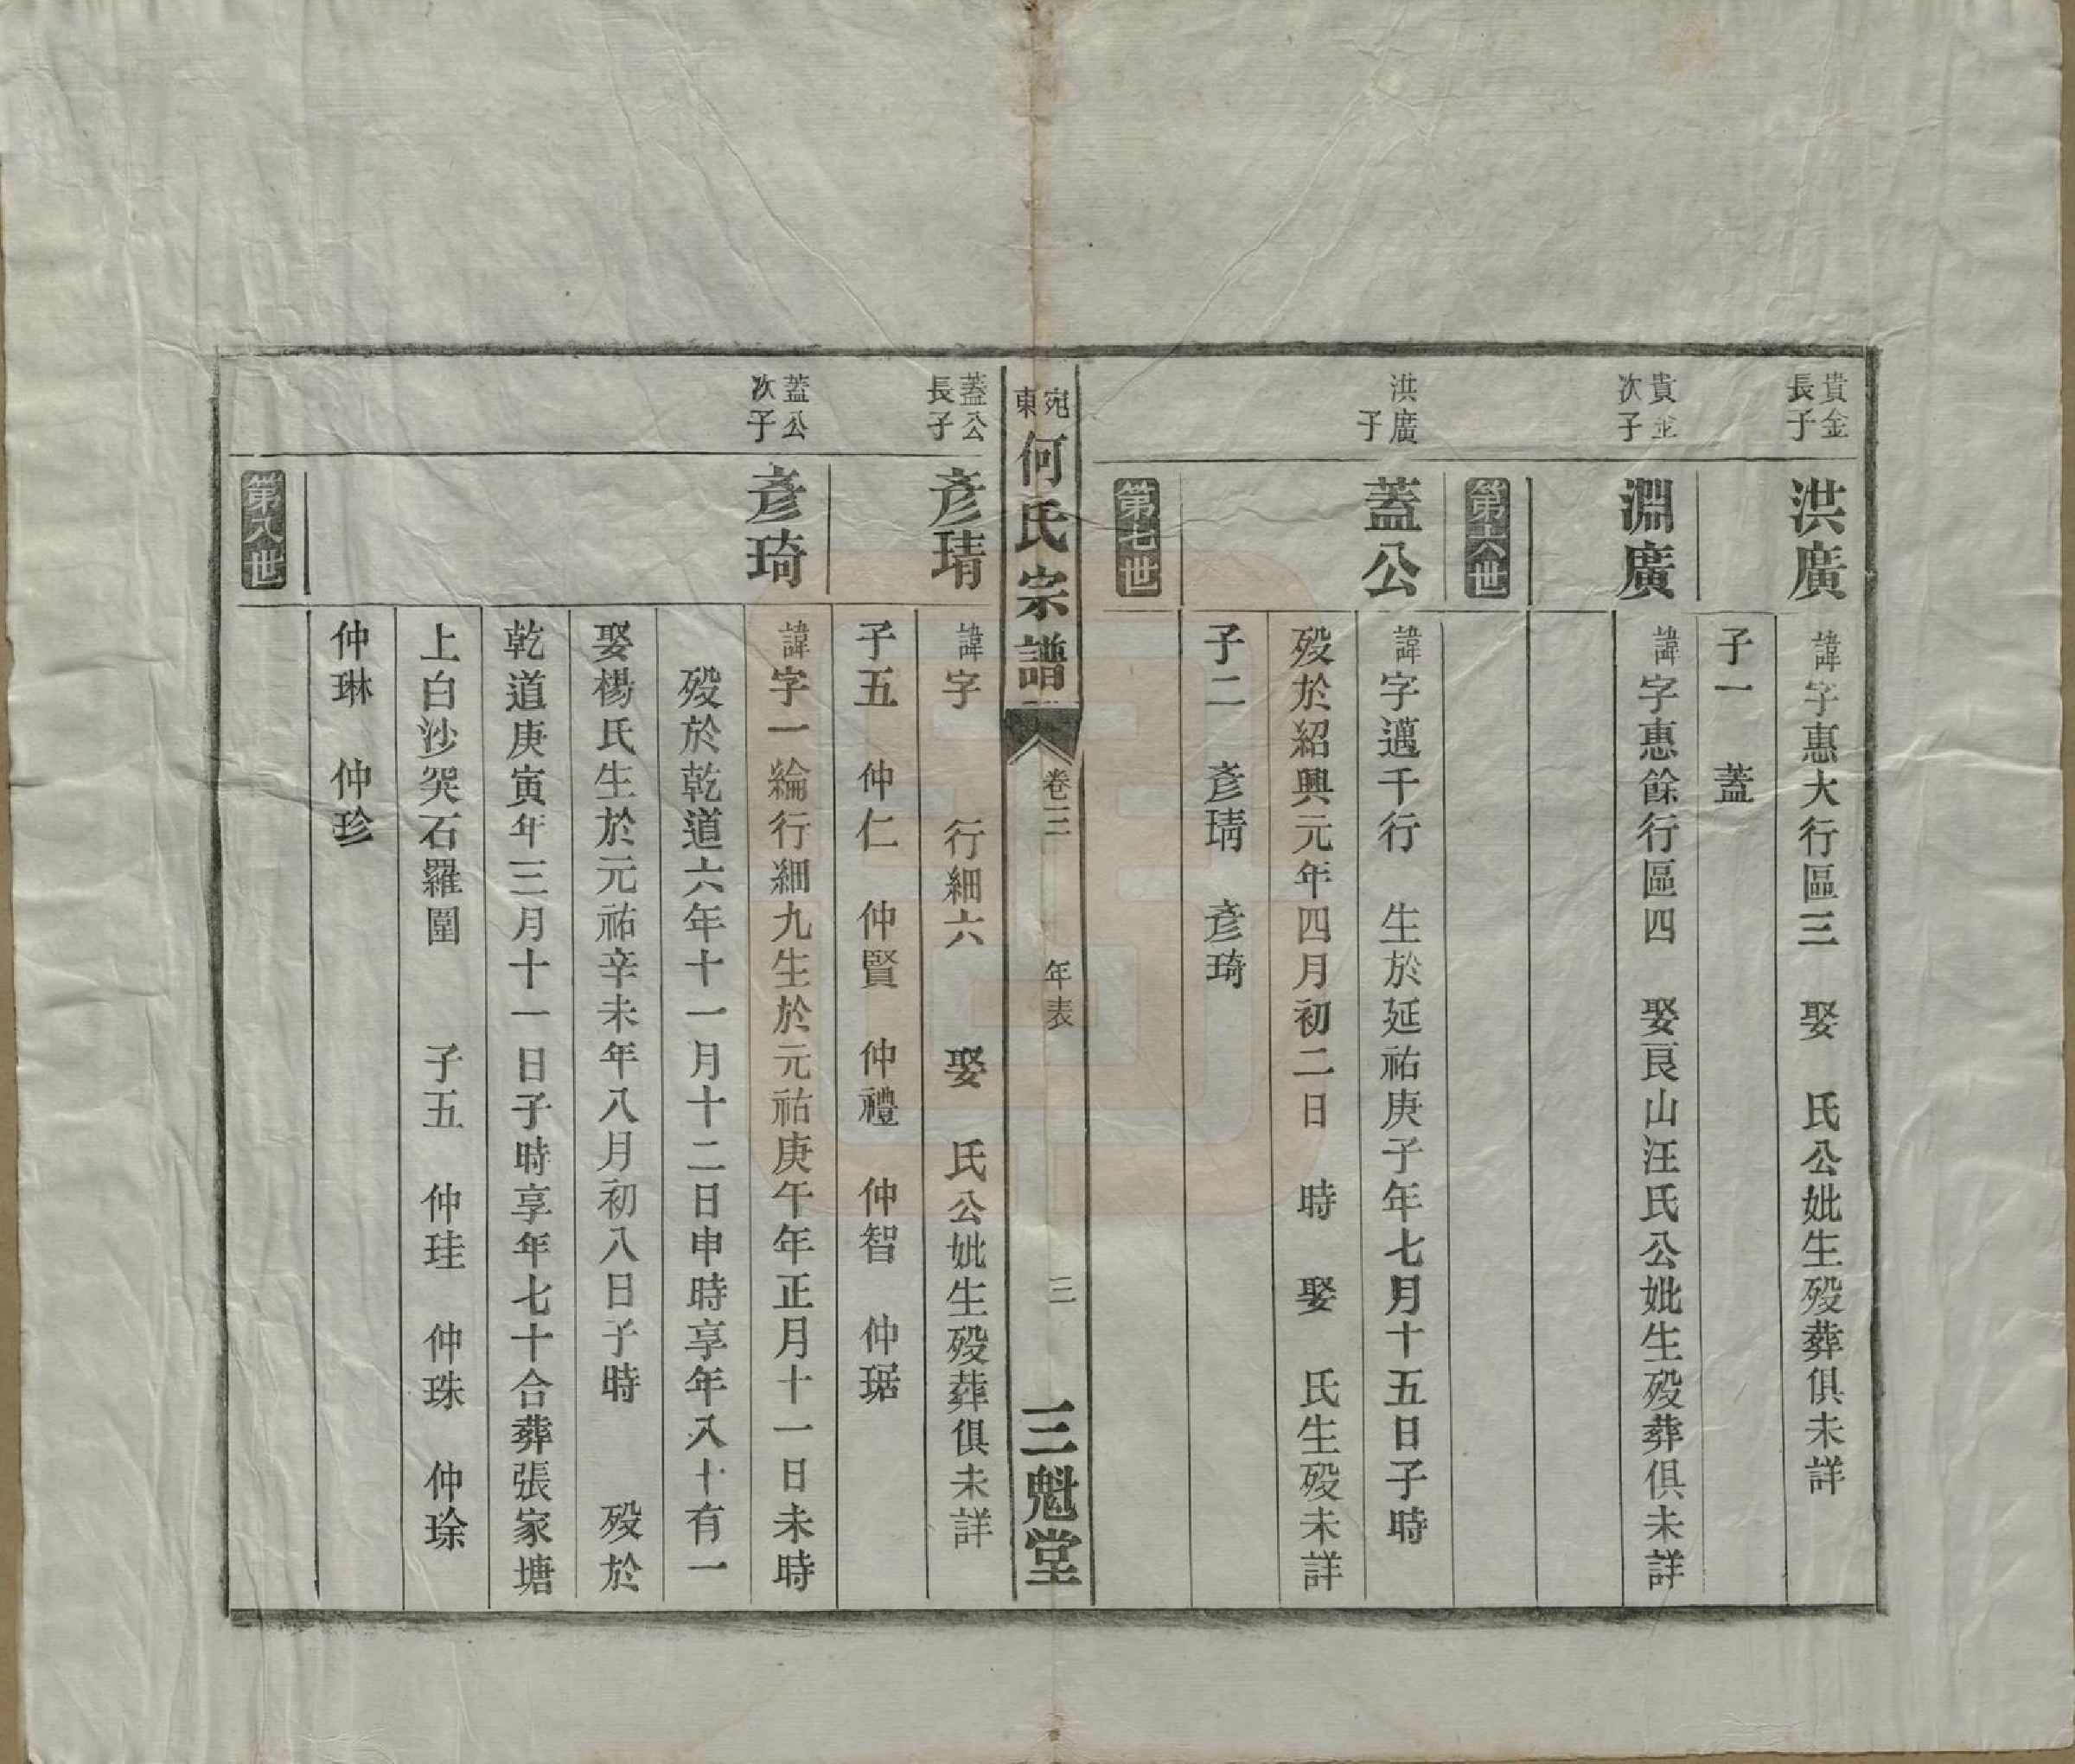 貴金長子
洪廣
諱字惠大行區三　娶　氏公妣生殁葬俱未詳
子一　蓋
貴金次子
淵廣
諱字惠餘行區四　娶良山汪氏公妣生殁葬俱未詳
第六世
洪廣子
蓋公
諱字邁千行　生於延祐庚子年七月十五日子時
殁於紹興元年四月初二日　時　娶　氏生殁未詳
子二　彥琦　彥琦
第七世
宛東何氏宗譜
卷三
年表
三
三魁堂
蓋公長子
彥琦
諱字　　行細六　　娶　氏公妣生殁葬俱未詳
子五　仲仁　仲賢　仲禮　仲智　仲琚
蓋公次子
彥琦
諱字一綸行細九生於元祐庚午年正月十一日未時
殁於乾道六年十一月十二日申時享年八十有一
娶楊氏生於元祐辛未年八月初八日子時　　殁於
乾道庚寅年三月十一日子時享年七十合葬張家塘
上白沙突石羅圍　　子五　仲珪　仲珠　仲琮
仲琳　仲珍
第八世